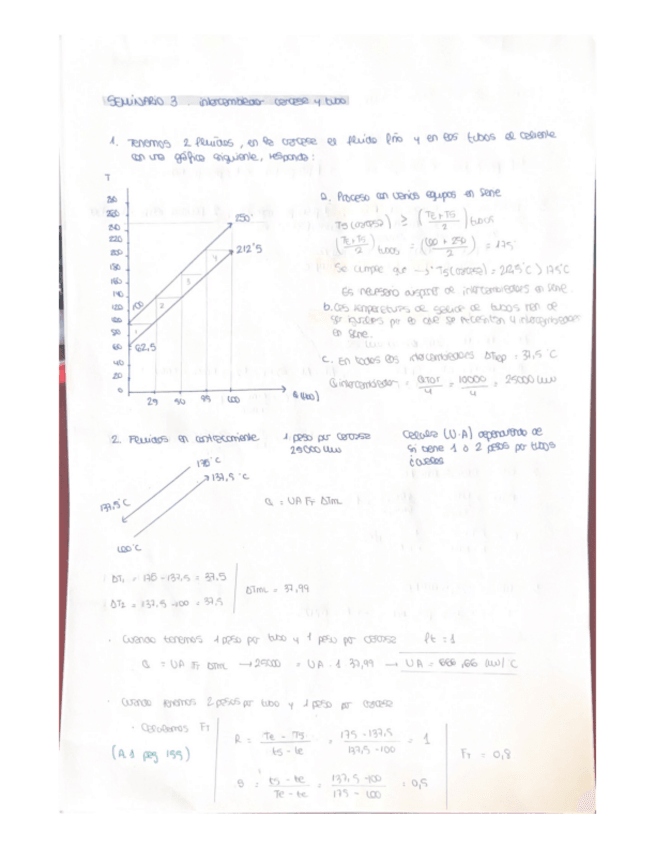 SEMINARIO 3. intercambiador carcasa y tubo
1. Tenemos 2 fluidos, en la carcasa el fluido frío y en los tubos el caliente
con una gráfica siguiente, responda:
T
250
212'5
100
62,5
60
40
20
0
25 50 100
a. Proceso con varios equipos en serie
Ts (carcasa) ≥ (Te+Ts / 2) tubos
(Te+Ts / 2) tubos = (100 + 250 / 2) = 175
Se cumple que → Ts (carcasa) = 212,5°C > 175°C
Es necesario disponer de intercambiadores en serie
b. Las temperaturas de salida de tubos han de
ser iguales por lo que se necesitan 4 intercambiadores
en serie.
c. En todos los intercambiadores ΔT = 37,5°C
Q intercambiador = QTOT / 4 = 10000 / 4 = 25000 kW
2. Fluidos en contracorriente 1 paso por carcasa
25000 kW
Calcular (U·A) dependiendo de
si tiene 1 o 2 pasos por tubos
175°C
137,5°C
137,5°C
100°C
Q = UA FT ΔTmL
ΔT1 = 175 - 137,5 = 37,5
ΔT2 = 137,5 - 100 = 37,5
ΔTmL = 37,99
· Cuando tenemos 1 paso por tubo y 1 paso por carcasa Ft = 1
Q = UA Ft ΔTmL → 25000 = UA · 1 · 37,99 → UA = 666,66 kW/°C
· Cuando tenemos 2 pasos por tubo y 1 paso por carcasa
· Calculamos FT
(A.1 pag 155)
R = Te - Ts / ts - te = 175 - 137,5 / 137,5 - 100 = 1
S = ts - te / Te - te = 137,5 - 100 / 175 - 100 = 0,5
FT = 0,8